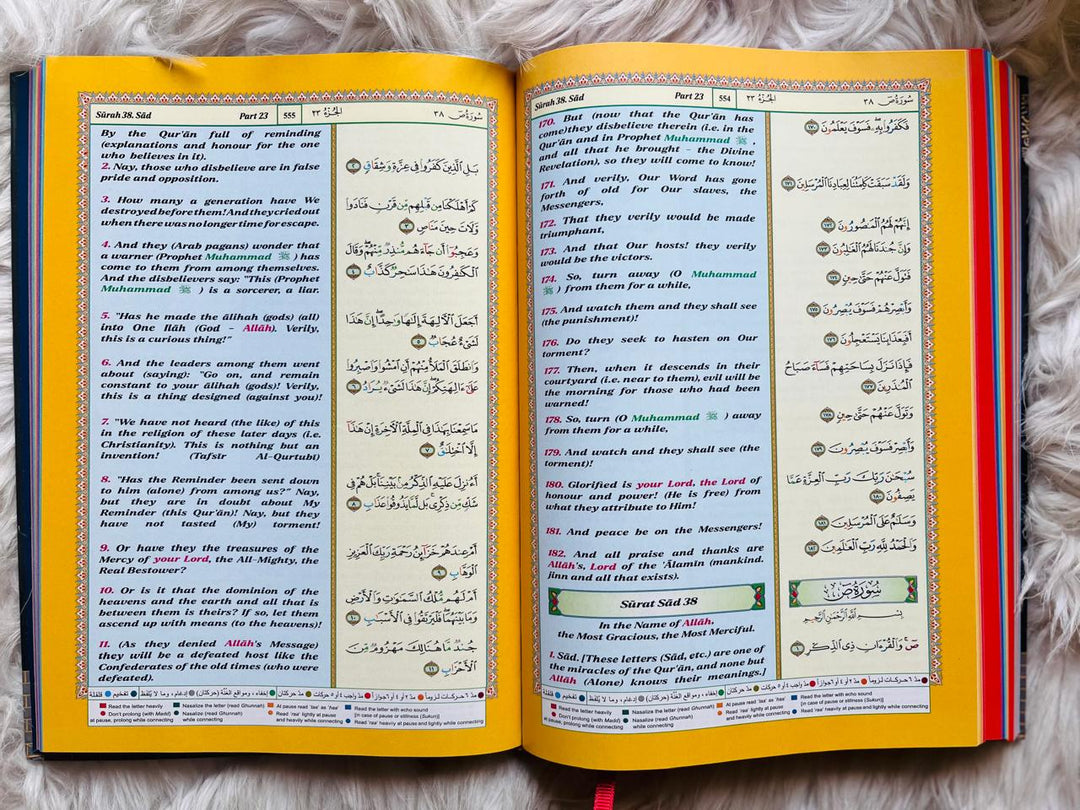 Sûrah 38. Sâd Part 23 554 الجزء ٢٣ سورة ص ٣٨
170. But (now that the Qur'ân has
come)they disbelieve therein (i.e. in the
Qur'ân and in Prophet Muhammad ﷺ ,
and all that he brought – the Divine
Revelation), so they will come to know!
171. And verily, Our Word has gone
forth of old for Our slaves, the
Messengers,
172. That they verily would be made
triumphant,
173. And that Our hosts! they verily
would be the victors.
174. So, turn away (O Muhammad
ﷺ ) from them for a while,
175. And watch them and they shall see
(the punishment)!
176. Do they seek to hasten on Our
torment?
177. Then, when it descends in their
courtyard (i.e. near to them), evil will be
the morning for those who had been
warned!
178. So, turn (O Muhammad ﷺ ) away
from them for a while,
179. And watch and they shall see (the
torment)!
180. Glorified is your Lord, the Lord of
honour and power! (He is free) from
what they attribute to Him!
181. And peace be on the Messengers!
182. And all praise and thanks are
Allâh's, Lord of the 'Âlamîn (mankind.
jinn and all that exists).
Sûrat Sâd 38
In the Name of Allâh,
the Most Gracious, the Most Merciful.
1. Sâd. [These letters (Sâd, etc.) are one of
the miracles of the Qur'ân, and none but
Allâh (Alone) knows their meanings.]
فَكَفَرُوا۟ بِهِۦ فَسَوْفَ يَعْلَمُونَ ١٧٠
وَلَقَدْ سَبَقَتْ كَلِمَتُنَا لِعِبَادِنَا ٱلْمُرْسَلِينَ ١٧١
إِنَّهُمْ لَهُمُ ٱلْمَنصُورُونَ ١٧٢
وَإِنَّ جُندَنَا لَهُمُ ٱلْغَـٰلِبُونَ ١٧٣
فَتَوَلَّ عَنْهُمْ حَتَّىٰ حِينٍ ١٧٤
وَأَبْصِرْهُمْ فَسَوْفَ يُبْصِرُونَ ١٧٥
أَفَبِعَذَابِنَا يَسْتَعْجِلُونَ ١٧٦
فَإِذَا نَزَلَ بِسَاحَتِهِمْ فَسَآءَ صَبَاحُ
ٱلْمُنذَرِينَ ١٧٧
وَتَوَلَّ عَنْهُمْ حَتَّىٰ حِينٍ ١٧٨
وَأَبْصِرْ فَسَوْفَ يُبْصِرُونَ ١٧٩
سُبْحَـٰنَ رَبِّكَ رَبِّ ٱلْعِزَّةِ عَمَّا
يَصِفُونَ ١٨٠
وَسَلَـٰمٌ عَلَى ٱلْمُرْسَلِينَ ١٨١
وَٱلْحَمْدُ لِلَّهِ رَبِّ ٱلْعَـٰلَمِينَ ١٨٢
سُورَةُ صٓ
بِسْمِ ٱللَّهِ ٱلرَّحْمَـٰنِ ٱلرَّحِيمِ
صٓ ۚ وَٱلْقُرْءَانِ ذِى ٱلذِّكْرِ ١
مدّ ٦ حركـات لزوماً مدّ ٢ أو ٤ أو ٦ جوازاً مدّ واجب ٤ أو ٥ حركات مدّ حركتان إخفاء، ومواقع الغُنَّة (حركتان) إدغام، وما لا يُلفَظ تفخيم قلقلة
Read the letter heavily Nasalize the letter (read Ghunnah) At pause read 'taa' as 'haa' Read the letter with echo sound
Don't prolong (with Madd) Nasalize (read Ghunnah) Read 'raa' lightly at pause [in case of pause or stillness (Sukun)]
at pause, prolong while connecting while connecting and heavily while connecting Read 'raa' heavily at pause and lightly while connecting
Sûrah 38. Sâd Part 23 555 الجزء ٢٣ سورة ص ٣٨
By the Qur'ân full of reminding
(explanations and honour for the one
who believes in it).
2. Nay, those who disbelieve are in false
pride and opposition.
3. How many a generation have We
destroyed before them! And they cried out
when there was no longer time for escape.
4. And they (Arab pagans) wonder that
a warner (Prophet Muhammad ﷺ ) has
come to them from among themselves.
And the disbelievers say: "This (Prophet
Muhammad ﷺ ) is a sorcerer, a liar.
5. "Has he made the âlihah (gods) (all)
into One Ilâh (God – Allâh). Verily,
this is a curious thing!"
6. And the leaders among them went
about (saying): "Go on, and remain
constant to your âlihah (gods)! Verily,
this is a thing designed (against you)!
7. "We have not heard (the like) of this
in the religion of these later days (i.e.
Christianity). This is nothing but an
invention! (Tafsîr Al-Qurtubî)
8. "Has the Reminder been sent down
to him (alone) from among us?" Nay,
but they are in doubt about My
Reminder (this Qur'ân)! Nay, but they
have not tasted (My) torment!
9. Or have they the treasures of the
Mercy of your Lord, the All-Mighty, the
Real Bestower?
10. Or is it that the dominion of the
heavens and the earth and all that is
between them is theirs? If so, let them
ascend up with means (to the heavens)!
11. (As they denied Allâh's Message)
they will be a defeated host like the
Confederates of the old times (who were
defeated).
بَلِ ٱلَّذِينَ كَفَرُوا۟ فِى عِزَّةٍ وَشِقَاقٍ ٢
كَمْ أَهْلَكْنَا مِن قَبْلِهِم مِّن قَرْنٍ فَنَادَوا۟
وَّلَاتَ حِينَ مَنَاصٍ ٣
وَعَجِبُوٓا۟ أَن جَآءَهُم مُّنذِرٌ مِّنْهُمْ ۖ وَقَالَ
ٱلْكَـٰفِرُونَ هَـٰذَا سَـٰحِرٌ كَذَّابٌ ٤
أَجَعَلَ ٱلْـَٔالِهَةَ إِلَـٰهًا وَٰحِدًا ۖ إِنَّ هَـٰذَا
لَشَىْءٌ عُجَابٌ ٥
وَٱنطَلَقَ ٱلْمَلَأُ مِنْهُمْ أَنِ ٱمْشُوا۟ وَٱصْبِرُوا۟
عَلَىٰٓ ءَالِهَتِكُمْ ۖ إِنَّ هَـٰذَا لَشَىْءٌ يُرَادُ ٦
مَا سَمِعْنَا بِهَـٰذَا فِى ٱلْمِلَّةِ ٱلْـَٔاخِرَةِ إِنْ هَـٰذَآ
إِلَّا ٱخْتِلَـٰقٌ ٧
أَءُنزِلَ عَلَيْهِ ٱلذِّكْرُ مِنۢ بَيْنِنَا ۚ بَلْ هُمْ فِى
شَكٍّ مِّن ذِكْرِى ۖ بَل لَّمَّا يَذُوقُوا۟ عَذَابِ ٨
أَمْ عِندَهُمْ خَزَآئِنُ رَحْمَةِ رَبِّكَ ٱلْعَزِيزِ
ٱلْوَهَّابِ ٩
أَمْ لَهُم مُّلْكُ ٱلسَّمَـٰوَٰتِ وَٱلْأَرْضِ
وَمَا بَيْنَهُمَا ۖ فَلْيَرْتَقُوا۟ فِى ٱلْأَسْبَـٰبِ ١٠
جُندٌ مَّا هُنَالِكَ مَهْزُومٌ مِّنَ
ٱلْأَحْزَابِ ١١
مدّ ٦ حركـات لزوماً مدّ ٢ أو ٤ أو ٦ جوازاً مدّ واجب ٤ أو ٥ حركات مدّ حركتان إخفاء، ومواقع الغُنَّة (حركتان) إدغام، وما لا يُلفَظ تفخيم قلقلة
Read the letter heavily Nasalize the letter (read Ghunnah) At pause read 'taa' as 'haa' Read the letter with echo sound
Don't prolong (with Madd) Nasalize (read Ghunnah) Read 'raa' lightly at pause [in case of pause or stillness (Sukun)]
at pause, prolong while connecting while connecting and heavily while connecting Read 'raa' heavily at pause and lightly while connecting